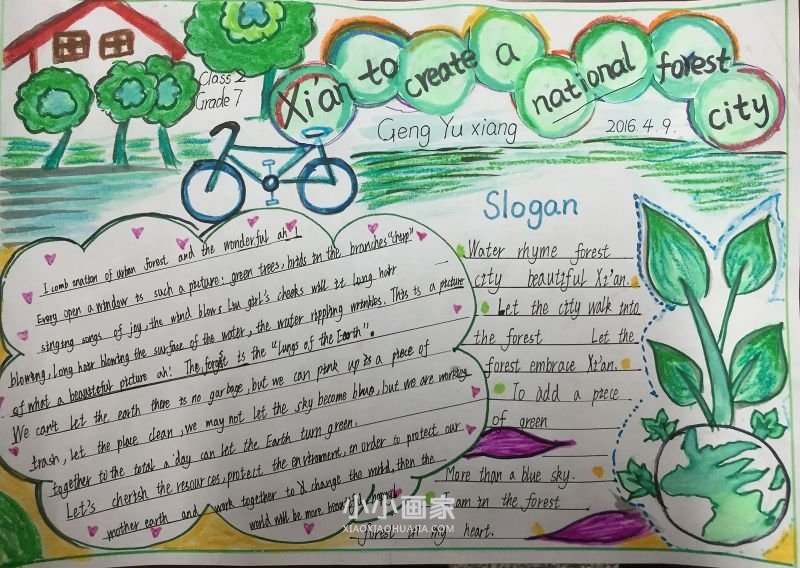 Xi'an to create a national forest city
Class 2
Grade 7
Geng Yu xiang
2016.4.9.
I comb ination of urban forest and the wonderful ah !
Every open a window is such a picture: green trees, birds in the branches "chirp"
singing songs of joy, the wind blows Lin girl's cheeks will it Long hair
blowing, Long hair blowing the surface of the water, the water rippling wrinkles. This is a picture
of what a beautiful picture ah! The forest is the "Lungs of the Earth".
We can't let the earth there is no garbage, but we can pink up a piece of
trash, let the place clean, we may not let the sky become blue, but we are working
together to the total a day can let the Earth turn green.
Let's cherish the resources, protect the environment, in order to protect our
mother earth and work together to change the world, then the
world will be more
Slogan
Water rhyme forest
city beautiful Xi'an.
Let the city walk into
the forest Let the
forest embrace Xi'an.
To add a piece
of green
More than a blue sky.
am in the forest
forest in my heart.
小小画家
XIAOXIAOHUAJIA.COM